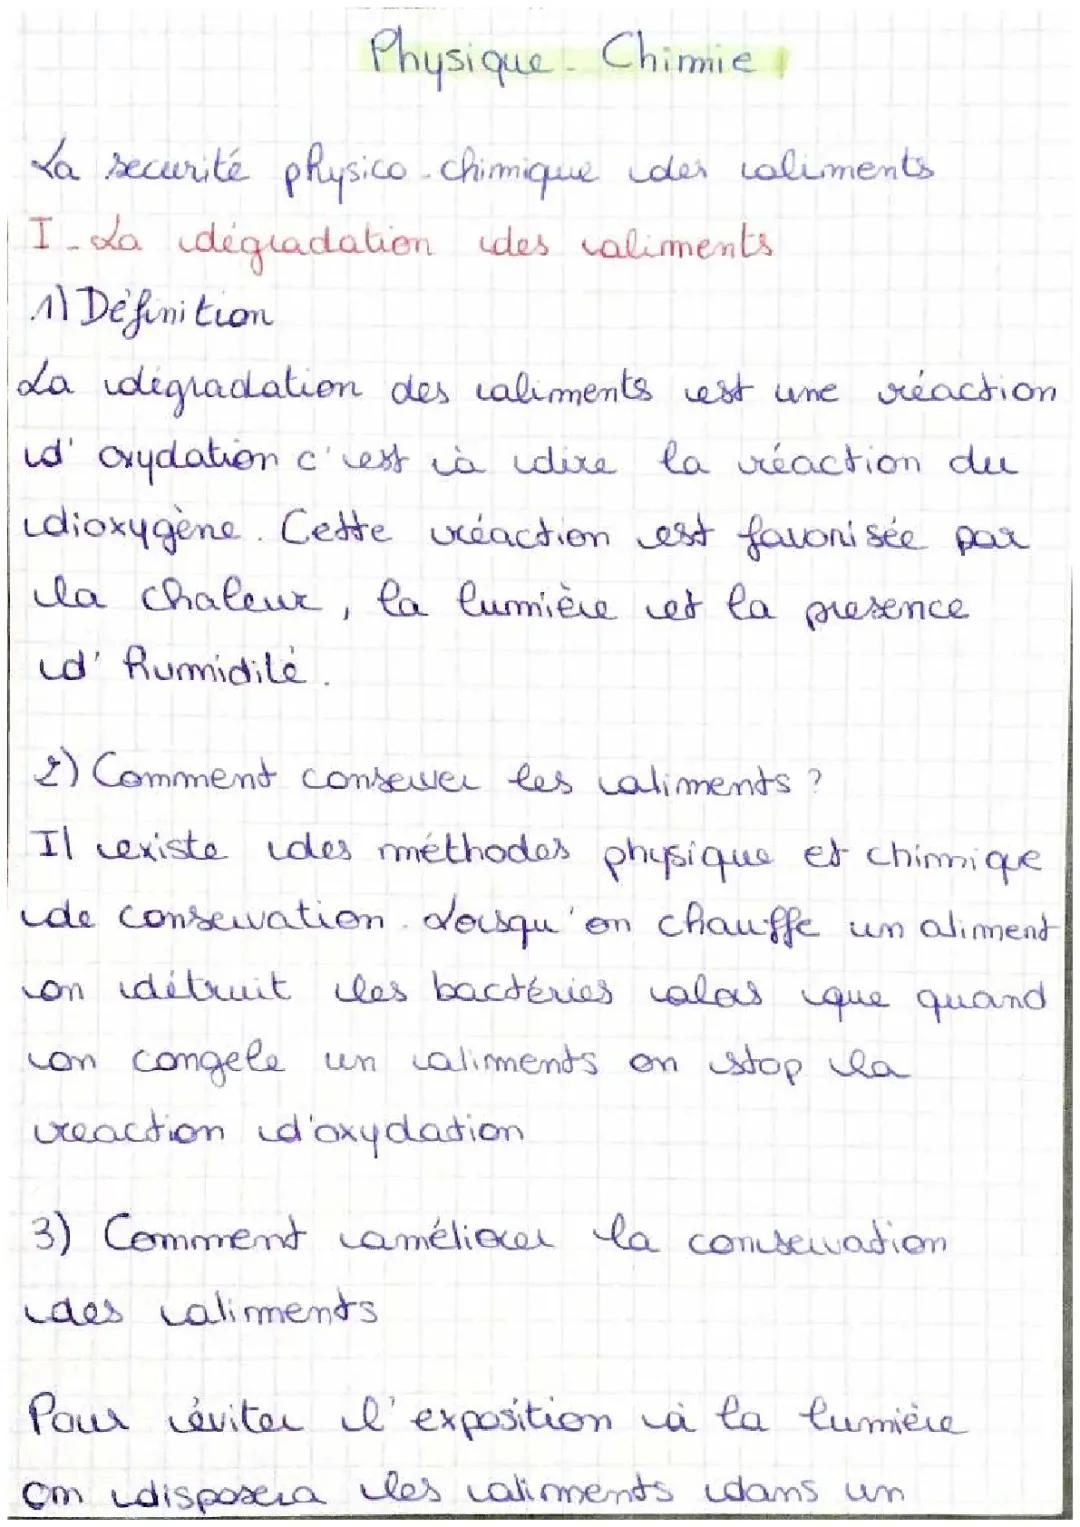 Physique - Chimie
La securité physico-chimique des aliments
I - La dégradation des aliments
1) Définition
La dégradation des aliments est une réaction
d'oxydation c'est à dire la réaction du
dioxygène. Cette réaction est favorisée par
la chaleur, la lumière et la presence
d'humidité.
2) Comment conserver les aliments ?
Il existe des méthodes physique et chimique
de conservation. Lorsqu'on chauffe un aliment
on détruit les bactéries alors que quand
on congele un aliments on stop la
reaction d'oxydation
3) Comment améliorer la conservation
des aliments
Pour éviter l'exposition à la lumière
on disposera les aliments dans un